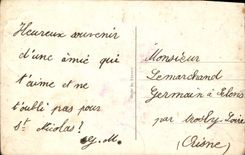 Heureux souvenir
d'une amie qui
t'aime et ne
t'oubli pas pour
St Nicolas!
G. M.
Monsieur
Lemarchand
Germain à
par Mosloy-Loire
(Aisne)